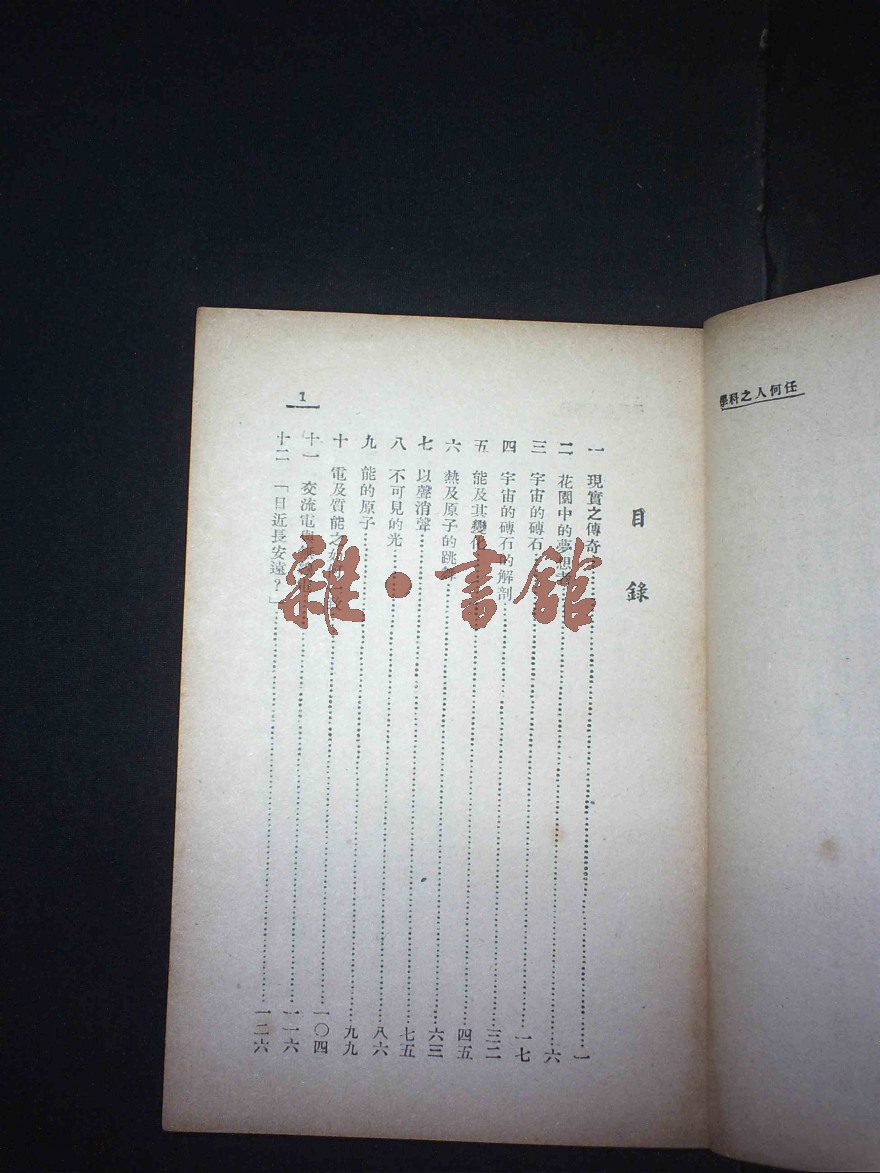 任何人之科學
目錄
一 現實之傳奇……一
二 花園中的夢想者……六
三 宇宙的磚石……一七
四 宇宙的磚石的解剖……三二
五 能及其變化……四五
六 熱及原子的跳……六三
七 以聲消聲……七五
八 不可見的光……八六
九 能的原子……九九
十 電及質能之……一〇四
十一 交流電與……一一六
十二 「日近長安遠?」……一二六
1
雜·書館